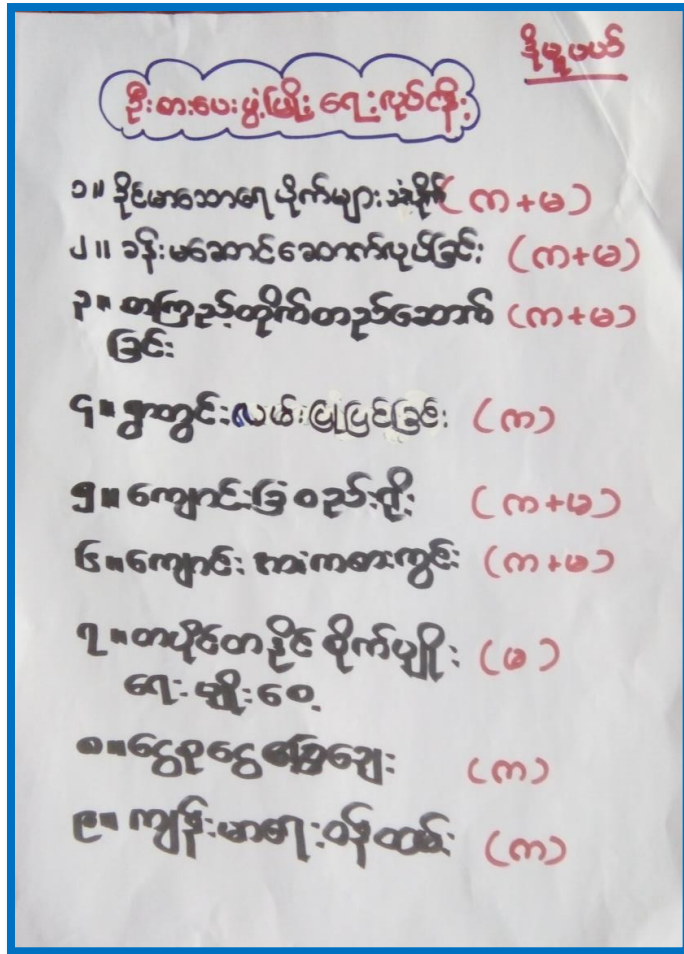 ဒိုမူဖယ်
ဦးစားပေးဖွံ့ဖြိုးရေးလုပ်ငန်း
၁။ ခိုင်မာသောရေပိုက်များ (က+မ)
၂။ ခန်းမဆောင်ဆောက်လုပ်ခြင်း (က+မ)
၃။ တကြည့်တိုက်တည်ဆောက် (က+မ)
ခြင်း
၄။ ရွာတွင်းလမ်းပြုပြင်ခြင်း (က)
၅။ ကျောင်းခြံစည်းရိုး (က+မ)
၆။ ကျောင်းအားကစားကွင်း (က+မ)
၇။ တပိုင်တနိုင်စိုက်ပျိုး (မ)
ရေး မျိုးစေ့
၈။ ငွေစုငွေချေး (က)
၉။ ကျန်းမာရေးဝန်ထမ်း (က)